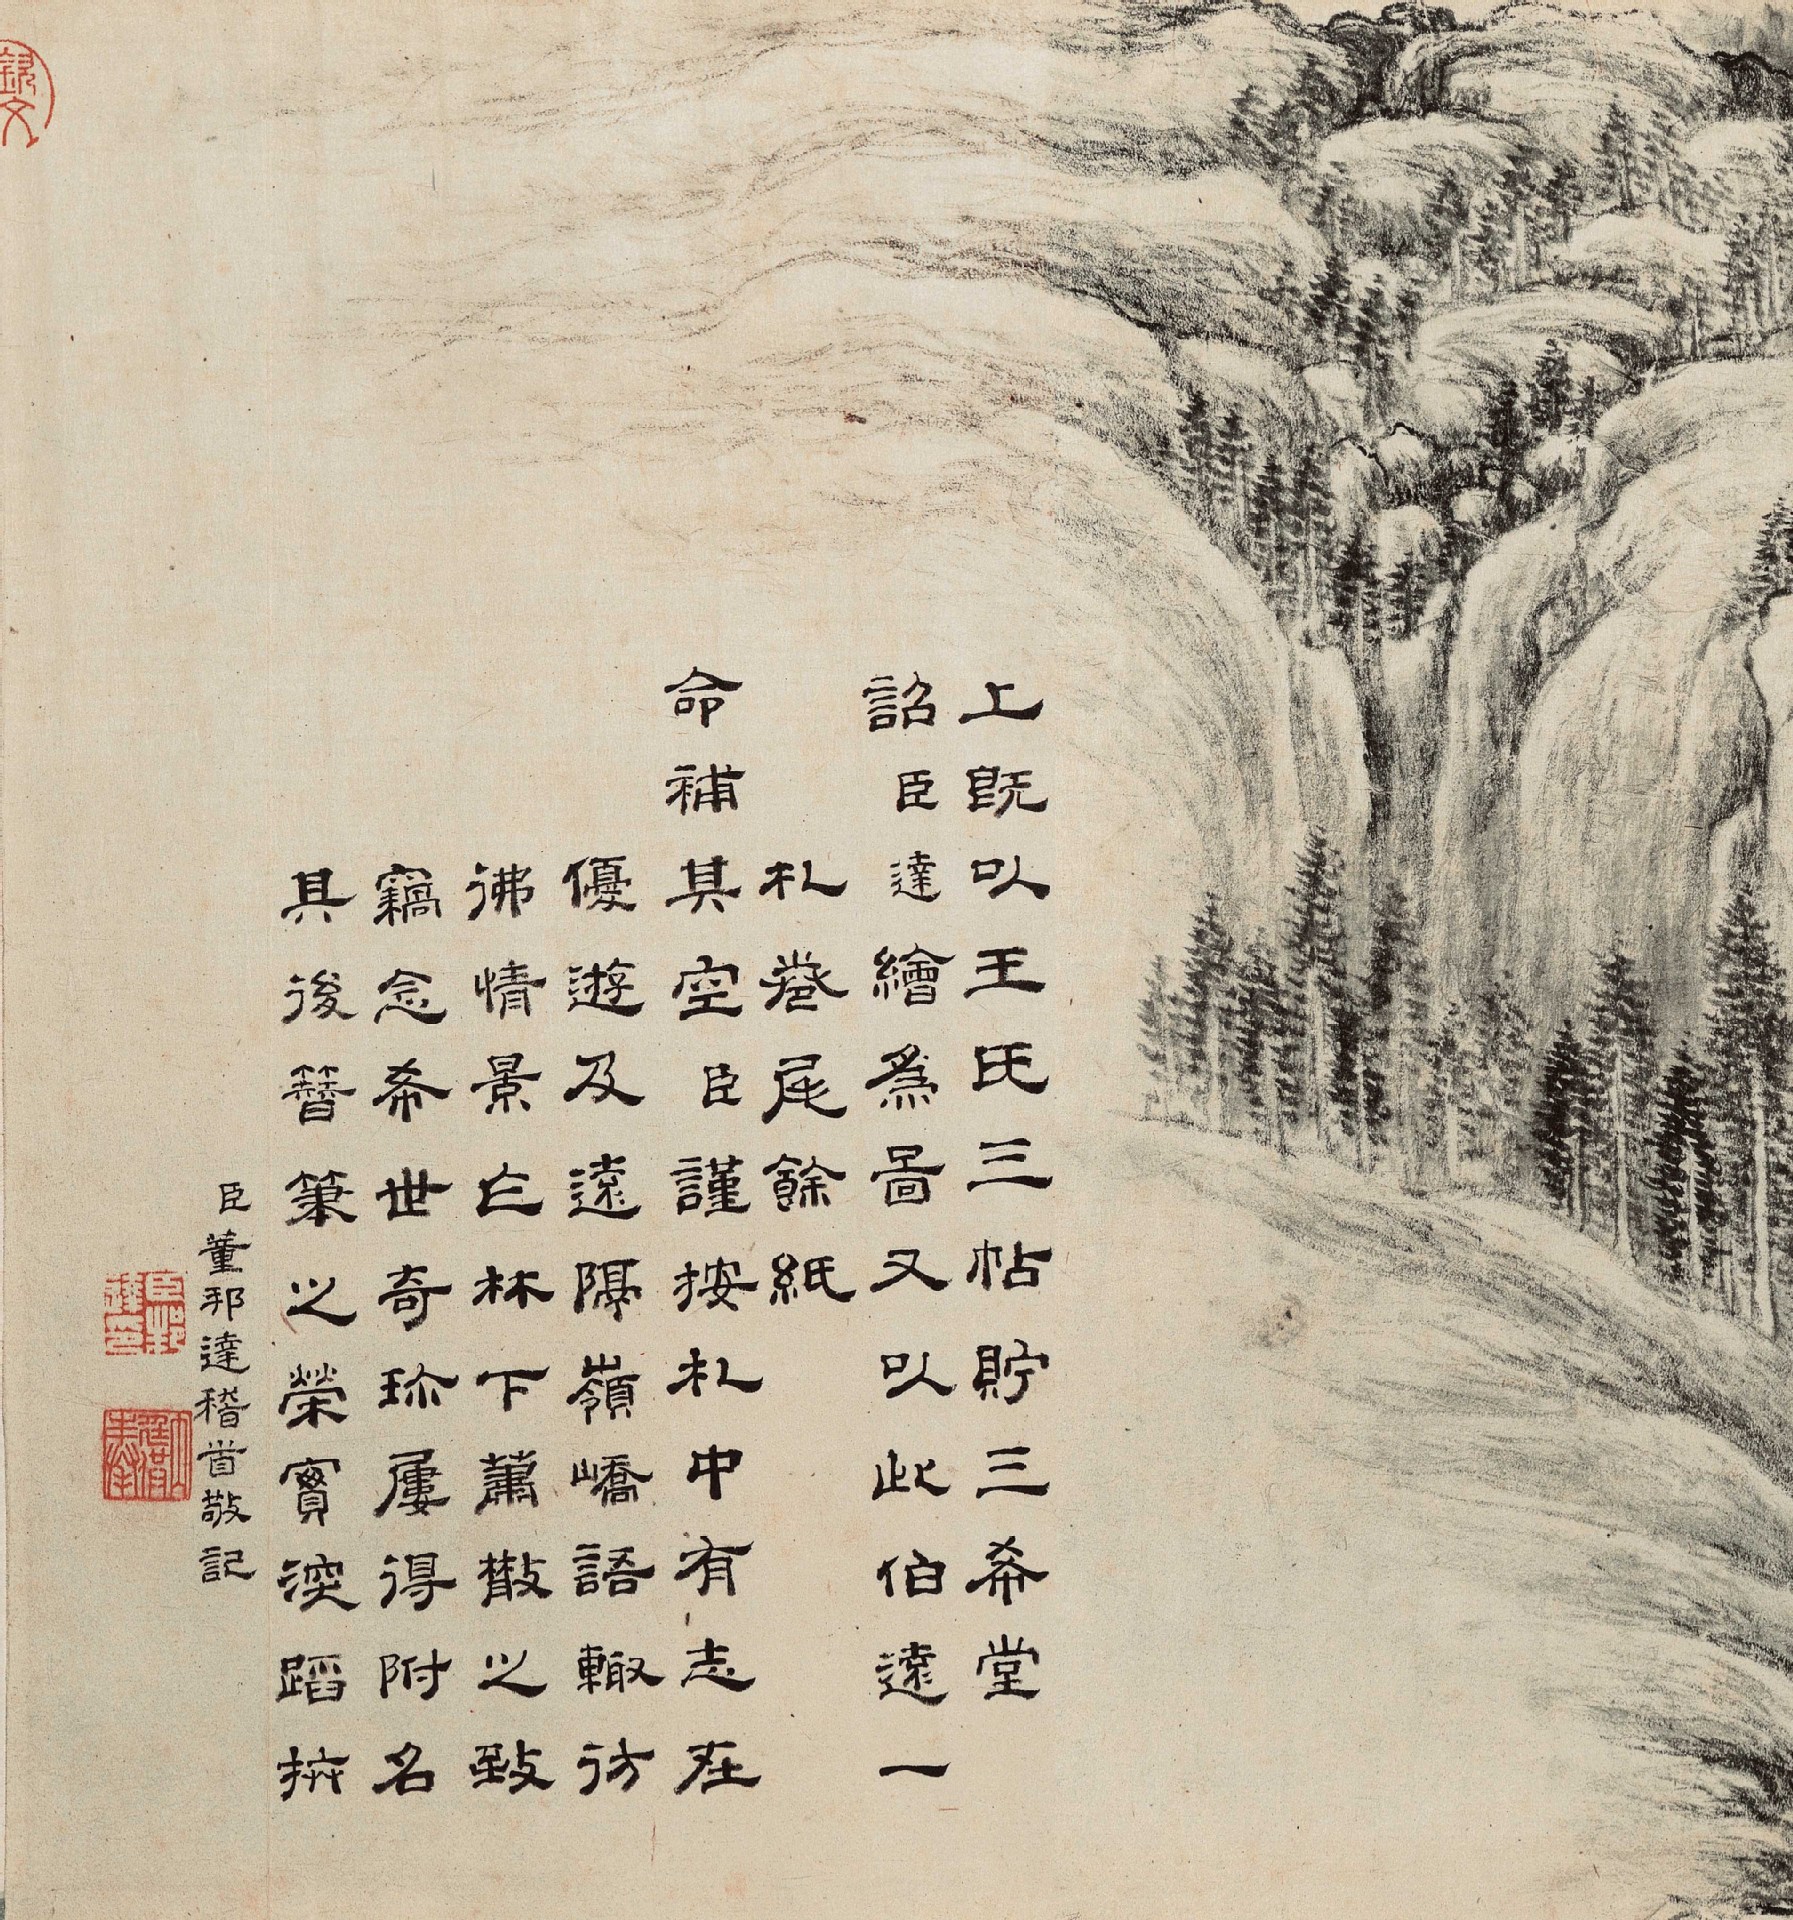 上既以王氏三帖貯三希堂
詔臣達繪為啚又以此伯遠一
札卷尾餘紙
命補其空臣謹按札中有志在
優遊及遠隔嶺嶠語輙彷
彿情景亡林下蕭散之致
竊念希世奇珎屢得附名
其後簪筆之榮實深蹈抃
臣董邦達稽首敬記